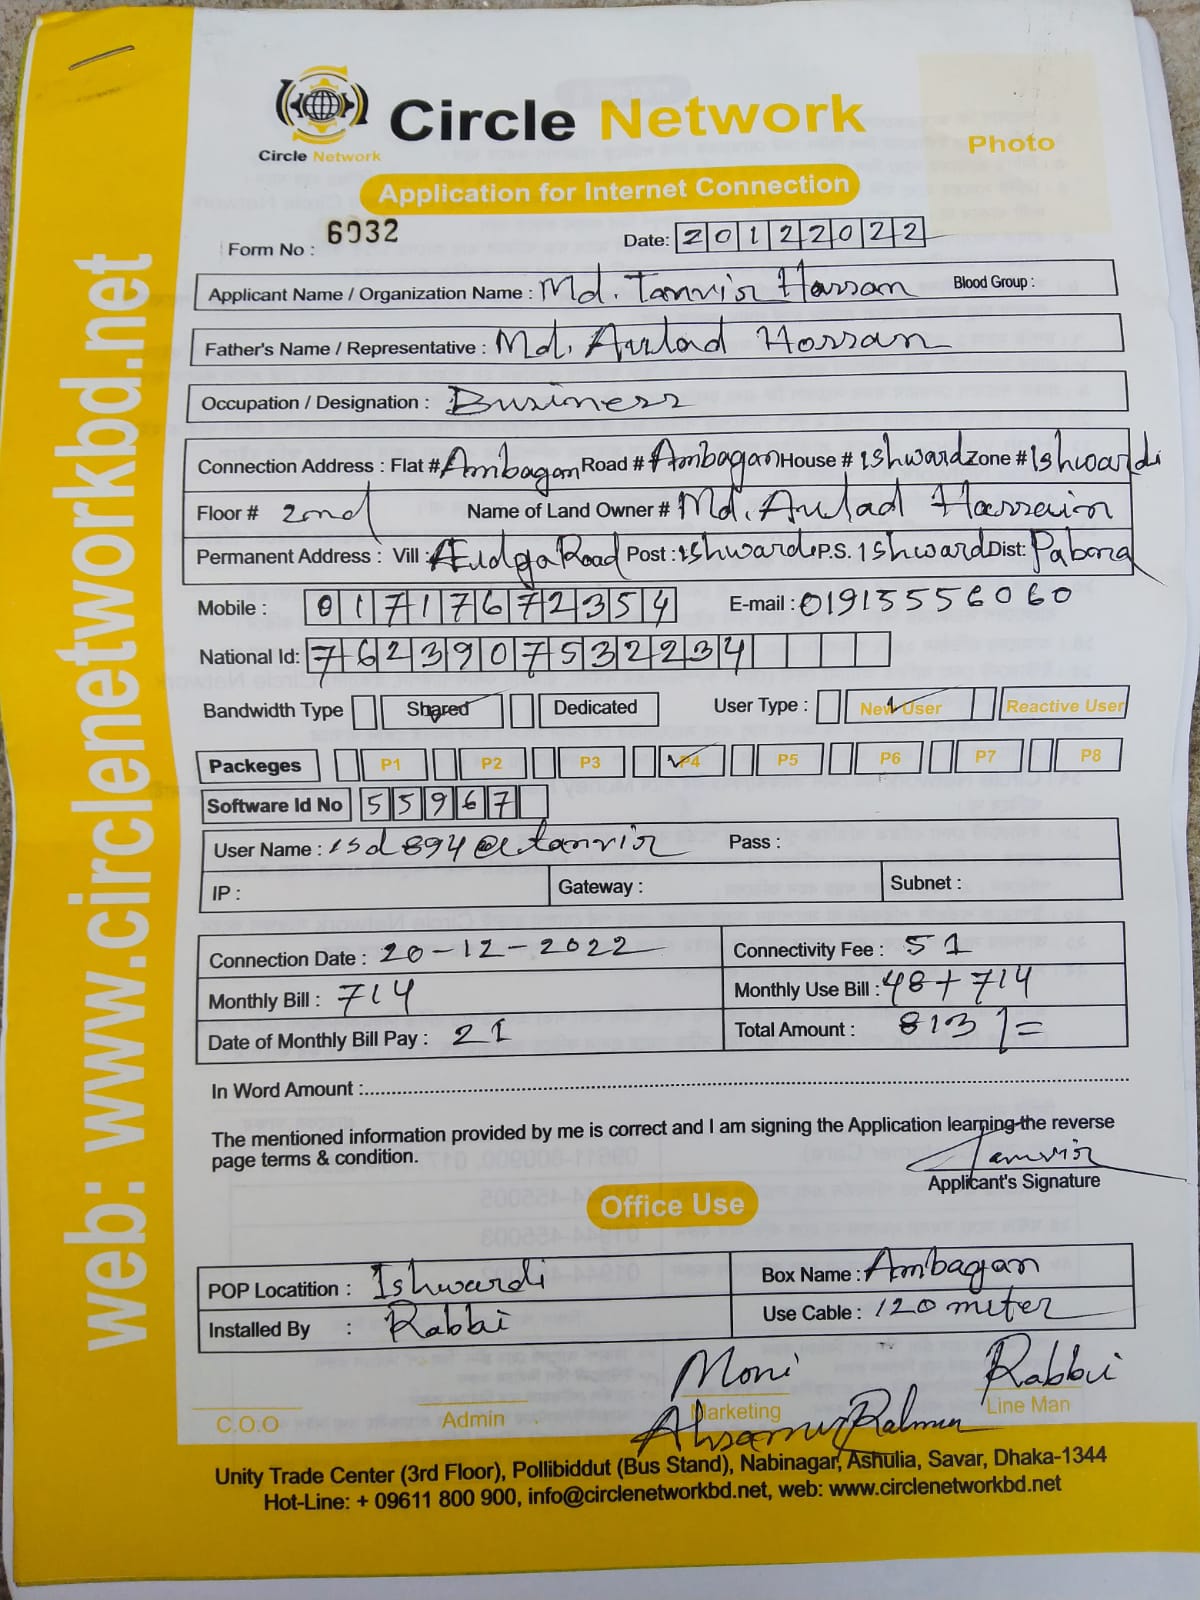 web: www.circlenetworkbd.net
Circle Network
Circle Network
Photo
Application for Internet Connection
Form No : 6032
Date: 20122022
Applicant Name / Organization Name : Md. Tanvir Hassan Blood Group :
Father's Name / Representative : Md. Aulad Hossan
Occupation / Designation : Business
Connection Address : Flat # Ambagan Road # Ambagan House # Ishward Zone # Ishwardi
Floor # 2nd Name of Land Owner # Md. Aulad Hassain
Permanent Address : Vill : Road Post : Ishwardi P.S. Ishward Dist: Pabna
Mobile : 01717672354 E-mail : 01915556060
National Id: 7623907532234
Bandwidth Type Shared Dedicated User Type : New User Reactive User
Packeges P1 P2 P3 P4 P5 P6 P7 P8
Software Id No 55967
User Name : isd894@ctanvir Pass :
IP : Gateway : Subnet :
Connection Date : 20-12-2022 Connectivity Fee : 51
Monthly Bill : 714 Monthly Use Bill : 48+714
Date of Monthly Bill Pay : 21 Total Amount : 813/=
In Word Amount :
The mentioned information provided by me is correct and I am signing the Application learning the reverse
page terms & condition.
Tanvir
Applicant's Signature
Office Use
POP Locatition : Ishwardi Box Name : Ambagan
Installed By : Rabbi Use Cable : 120 miter
Moni Rabbi
C.O.O Admin Marketing Line Man
Unity Trade Center (3rd Floor), Pollibiddut (Bus Stand), Nabinagar, Ashulia, Savar, Dhaka-1344
Hot-Line: + 09611 800 900, info@circlenetworkbd.net, web: www.circlenetworkbd.net